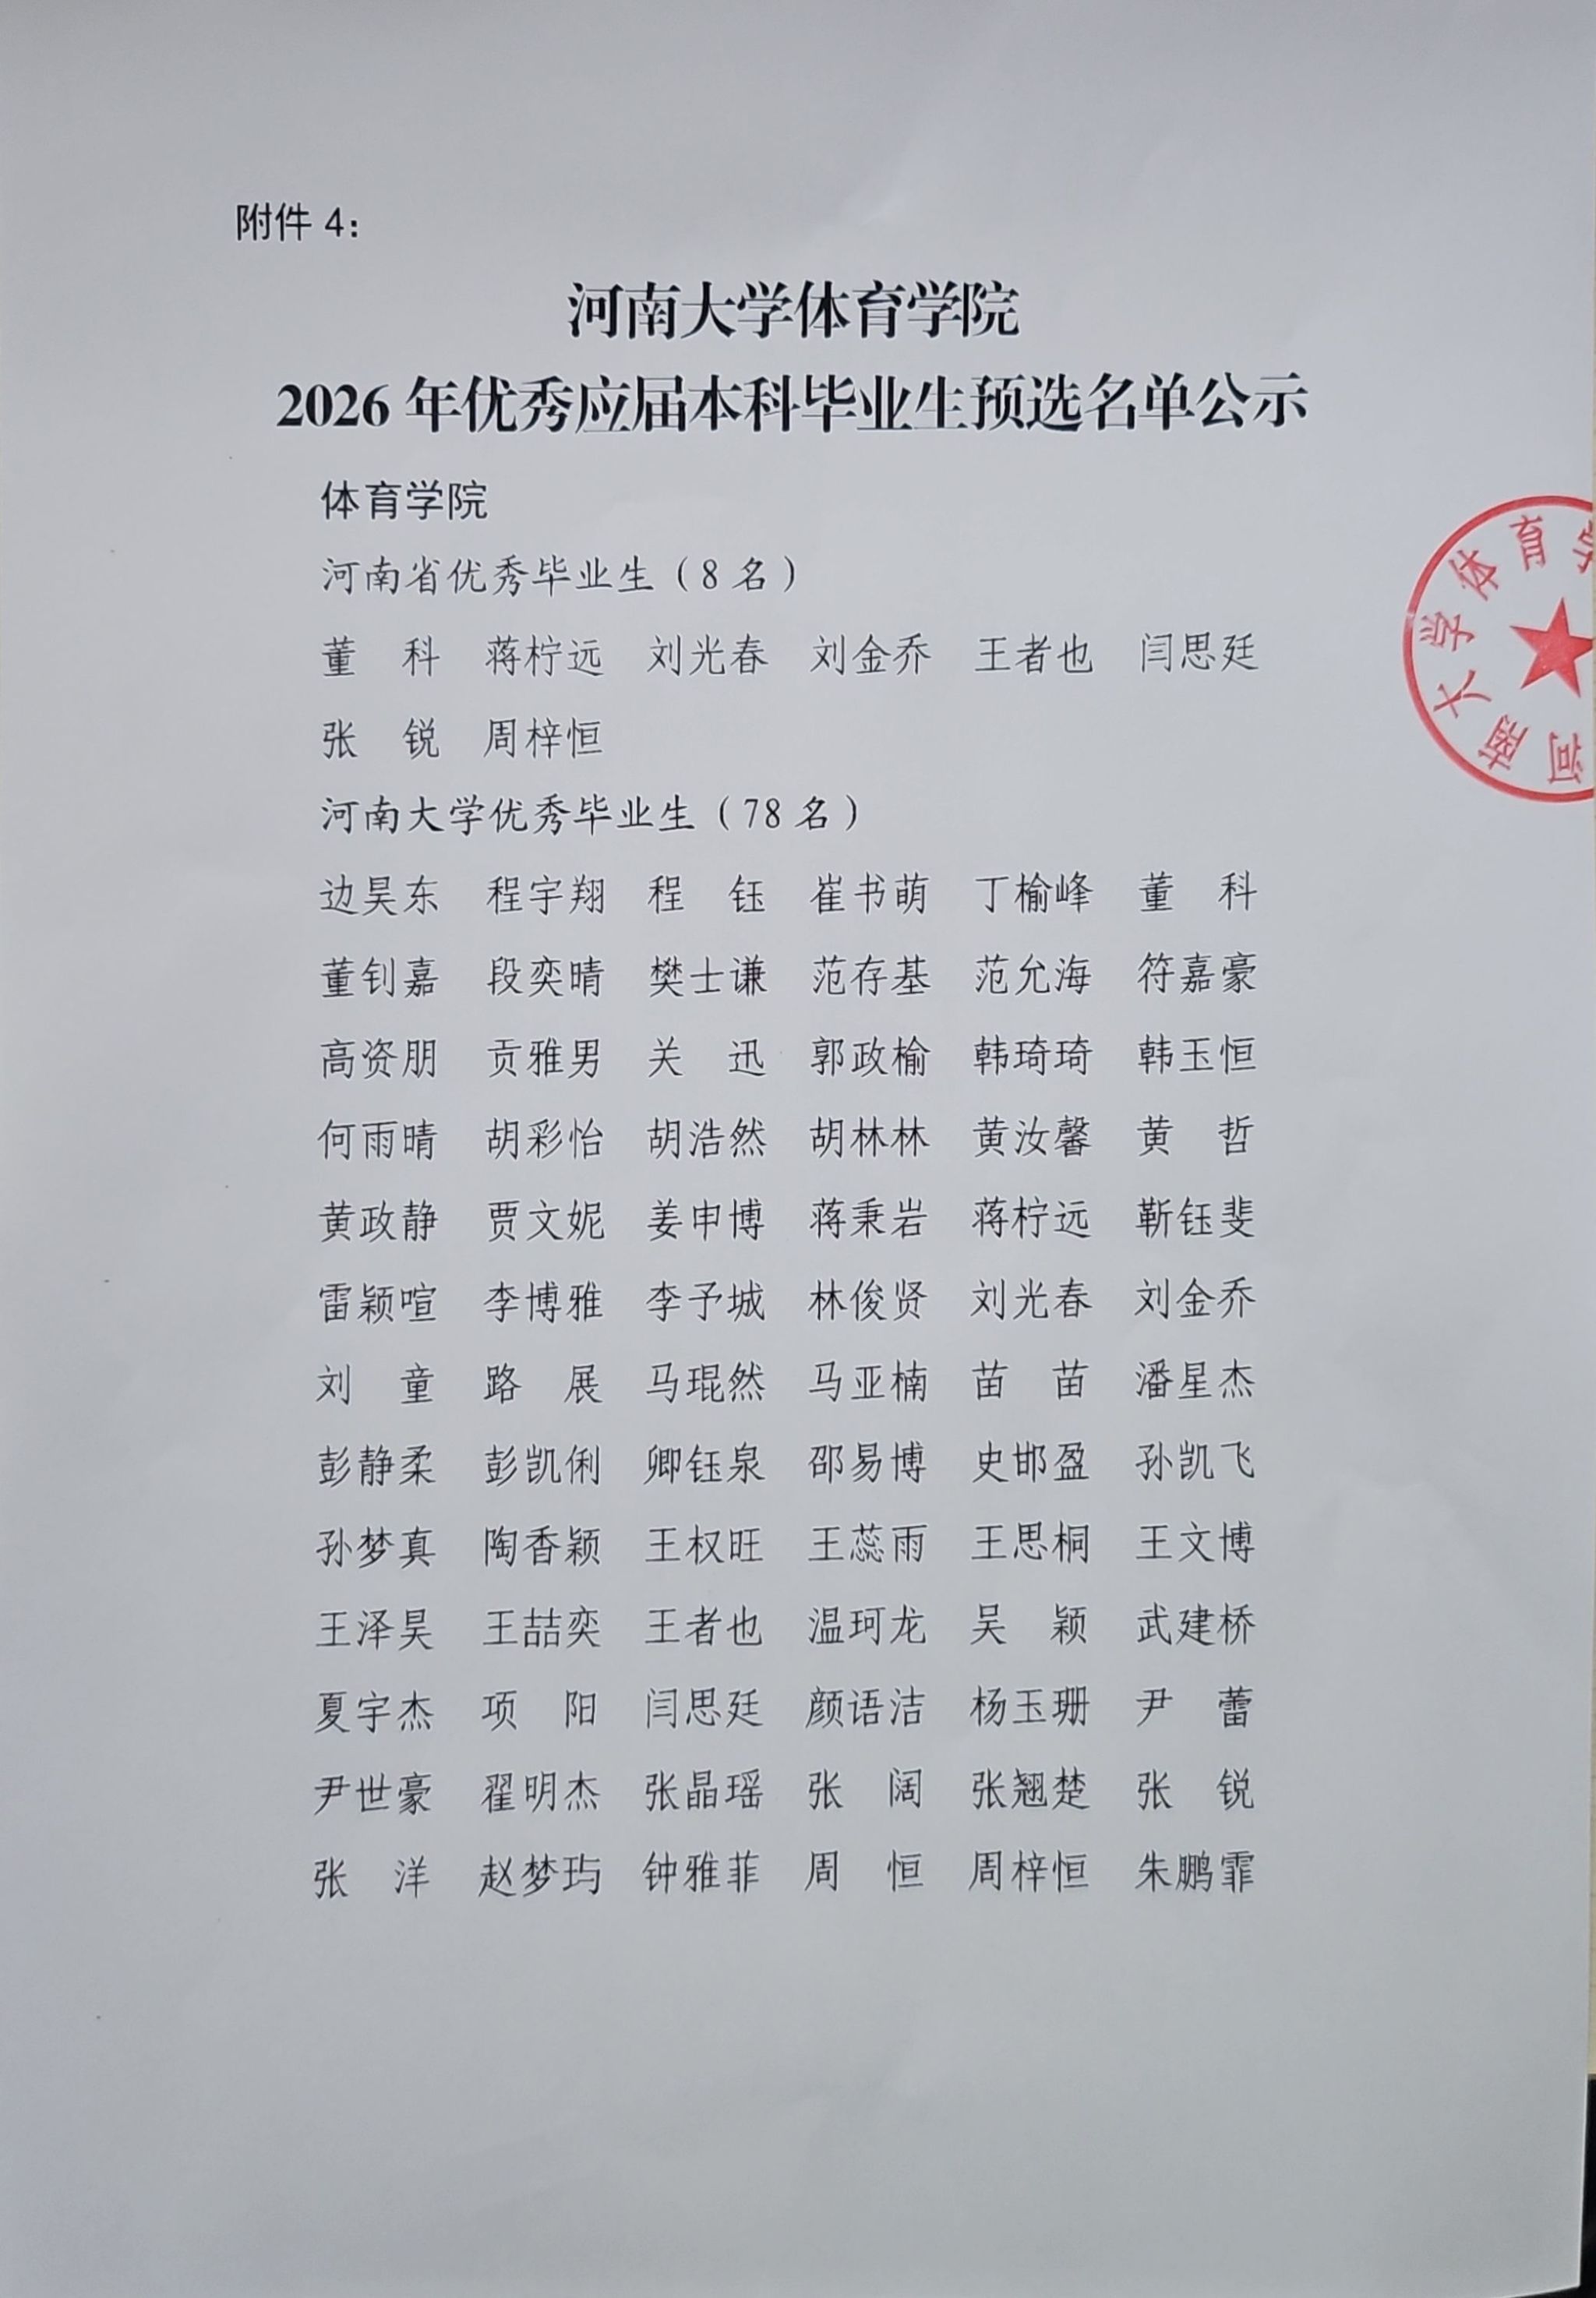 附件 4：
河南大学体育学院
2026 年优秀应届本科毕业生预选名单公示
体育学院
河南省优秀毕业生（8 名）
董　科　蒋柠远　刘光春　刘金乔　王者也　闫思廷
张　锐　周梓恒
河南大学优秀毕业生（78 名）
边昊东　程宇翔　程　钰　崔书萌　丁榆峰　董　科
董钊嘉　段奕晴　樊士谦　范存基　范允海　符嘉豪
高资朋　贡雅男　关　迅　郭政榆　韩琦琦　韩玉恒
何雨晴　胡彩怡　胡浩然　胡林林　黄汝馨　黄　哲
黄政静　贾文妮　姜申博　蒋秉岩　蒋柠远　靳钰斐
雷颖喧　李博雅　李予城　林俊贤　刘光春　刘金乔
刘　童　路　展　马琨然　马亚楠　苗　苗　潘星杰
彭静柔　彭凯俐　卿钰泉　邵易博　史邯盈　孙凯飞
孙梦真　陶香颖　王权旺　王蕊雨　王思桐　王文博
王泽昊　王喆奕　王者也　温珂龙　吴　颖　武建桥
夏宇杰　项　阳　闫思廷　颜语洁　杨玉珊　尹　蕾
尹世豪　翟明杰　张晶瑶　张　阔　张翘楚　张　锐
张　洋　赵梦玙　钟雅菲　周　恒　周梓恒　朱鹏霏
河南大学体育学